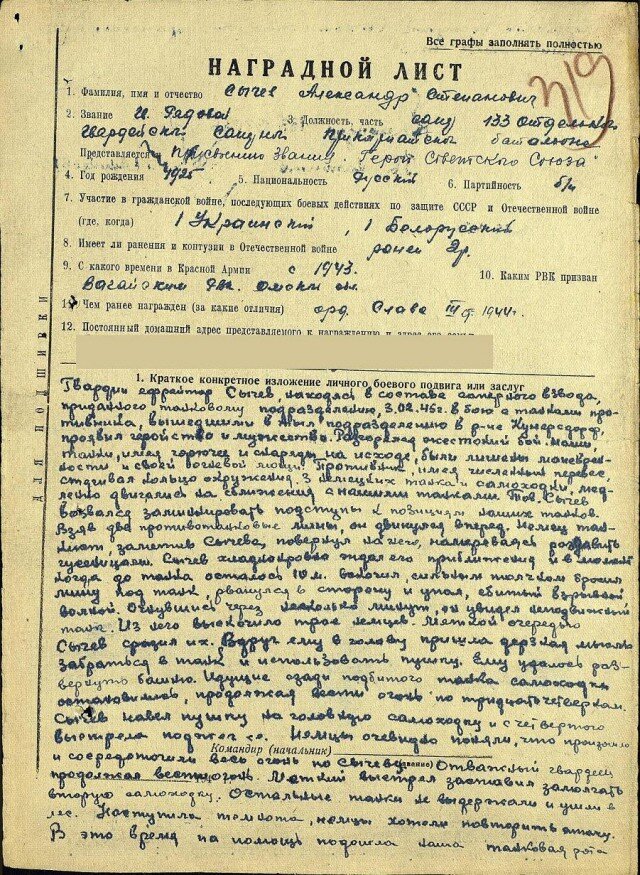 Все графы заполнять полностью
НАГРАДНОЙ ЛИСТ
319
1. Фамилия, имя и отчество Сычев Александр Степанович
2. Звание гв. Рядовой 3. Должность, часть 133 Отдельного
Гвардейского батальона
Представляется присвоению звания "Герой Советского Союза"
4. Год рождения 1925 5. Национальность Русский 6. Партийность б/п
7. Участие в гражданской войне, последующих боевых действиях по защите СССР и Отечественной войне
(где, когда) 1 Украинский, 1 Белорусский
8. Имеет ли ранения и контузии в Отечественной войне ранен
9. С какого времени в Красной Армии с 1943. 10. Каким РВК призван
Вагайским Рвк. Омской обл.
11. Чем ранее награжден (за какие отличия) орд. Слава III ст 1944г.
12. Постоянный домашний адрес представляемого к награждению и адрес его семьи
ДЛЯ ПОДШИВКИ
1. Краткое конкретное изложение личного боевого подвига или заслуг
Гвардии ефрейтор Сычев, находясь в составе саперного взвода,
приданного танковому подразделению, 3.02.45г. в бою с танками про-
тивника, вышедшими в тыл подразделению в р-не Кунерсдорф,
проявил геройство и мужество. Разгорелся жестокий бой. Наши
танки, имея горючее и снаряды на исходе, были лишены маневрен-
ности и своей огневой мощи. Противник, имея численный перевес,
сдваивал кольцо окружения. 3 немецких танка и самоходки, мед-
ленно двигались на сближение с нашими танками. Тов. Сычев
вызвался заминировать подступы к позициям наших танков.
Взяв две противотанковые мины, он двинулся вперед. Немец тан-
кист, заметив Сычева, повернул на него, намереваясь раздавить
гусеницами. Сычев хладнокровно ждал его приближения и в момент
когда до танка осталось 10 м. вскочил, сильным толчком бросил
мину под танк, рванулся в сторону и упал, сбитый взрывной
волной. Очнувшись через несколько минут, он увидел неподвижный
танк. Из него выскочило трое немцев. Меткой очередью
Сычев сразил их. Вдруг ему в голову пришла дерзкая мысль
забраться в танк и использовать пушку. Ему удалось раз-
вернуть башню. Идущие сзади подбитого танка самоходки
остановились, продолжая вести огонь по тридцатьчетверкам.
Сычев навел пушку на головную самоходку и с четвертого
выстрела поджег ее. Немцы очевидно поняли, что произошло
Командир (начальник)
и сосредоточили весь огонь по Сычеву. (звание) Отважный гвардеец
продолжал вести огонь. Меткий выстрел заставил замолчать
вторую самоходку. Остальные танки не выдержали и ушли в
лес. Наступила темнота, немцы хотели повторить атаку.
В это время на помощь подошла наша танковая рота